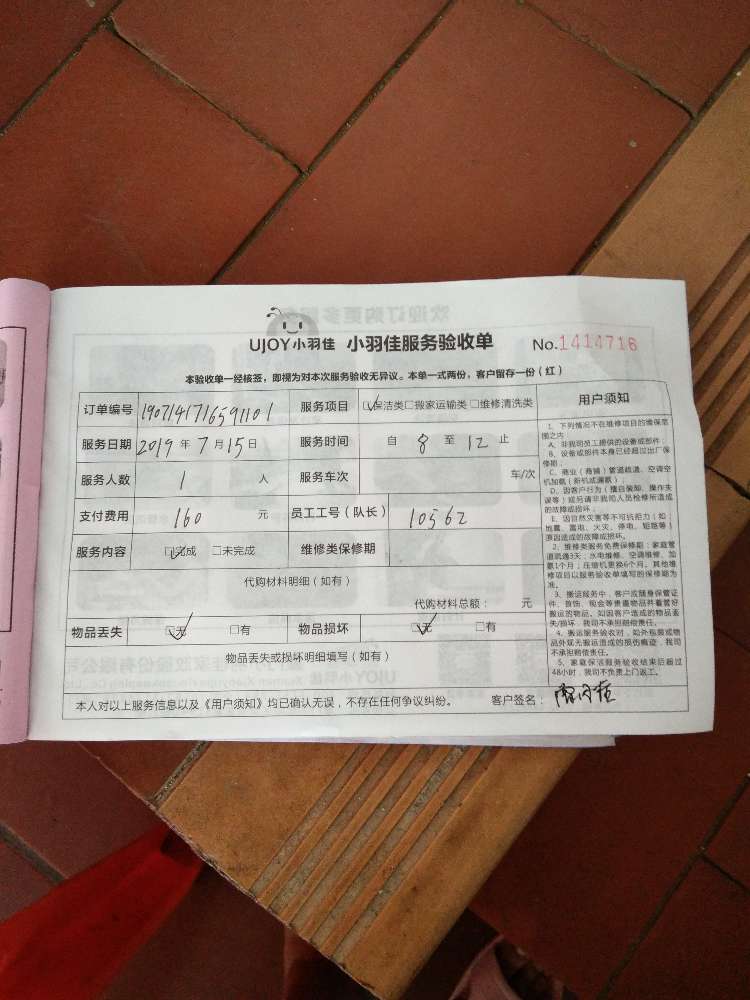 UJOY小羽佳 小羽佳服务验收单 No.1414716
本验收单一经核签，即视为对本次服务验收无异议。本单一式两份，客户留存一份（红）
订单编号 1907141716591101 服务项目 ☑保洁类□搬家运输类□维修清洗类
服务日期 2019年7月15日 服务时间 自 8 至 12 止
服务人数 1 人 服务车次 车/次
支付费用 160 元 员工工号（队长） 10562
服务内容 ☑完成 □未完成 维修类保修期
代购材料明细（如有）
代购材料总额： 元
物品丢失 ☑无 □有 物品损坏 ☑无 □有
物品丢失或损坏明细填写（如有）
本人对以上服务信息以及《用户须知》均已确认无误，不存在任何争议纠纷。 客户签名：
用户须知
1、下列情况不在维修项目的维保范
围之内
A、非我司员工提供的设备或部件；
B、设备或部件本身已经超过出厂保
修期；
C、商业（商铺）管道疏通、空调空
机加氨（新机或漏氨）；
D、因客户行为（擅自装卸、操作失
误等）或另请非我司人员检修所造成
的故障或损坏；
E、因自然灾害等不可抗拒力（如：
地震、雷电、火灾、停电、短路等）
原因造成的故障或损坏。
2、维修类服务免费保修期：家庭管
道疏通3天；水电维修、空调维修、加
氨1个月；压缩机更换6个月。其他维
修项目以服务验收单填写的保修期为
准。
3、搬运服务中，客户应随身保管证
件、首饰、现金等贵重物品并看管好
搬运的物品。如因客户造成的物品丢
失/损坏，我司不承担赔偿责任。
4、搬运服务验收时，如外包装或物
品外观无搬运造成的损伤痕迹，我司
不承担赔偿责任。
5、家庭保洁服务验收结束后超过
48小时，我司不负责上门返工。